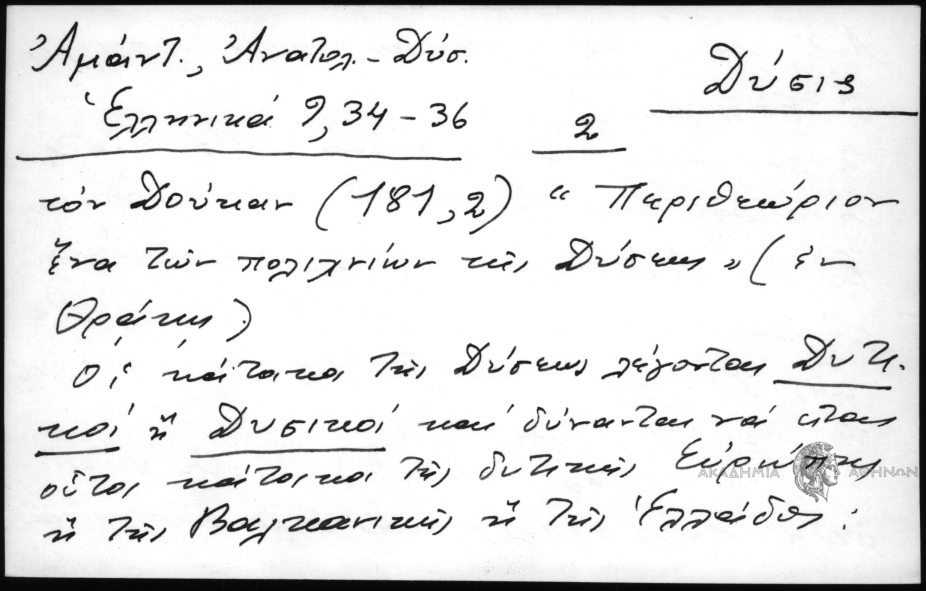 Ἀμάντ., Ἀνατολ. – Δύσ.
Δύσις
Ἑλληνικά 9, 34 – 36
2
τὸν Δούκαν (181, 2) “ Περιθεώριον
ἕνα τῶν πολιχνίων τῆς Δύσεως „ ( ἐν
Θράκῃ )
Οἱ κάτοικοι τῆς Δύσεως λέγονται Δυτι-
κοί ἢ Δυσικοί καί δύνανται νά εἶναι
οὗτοι κάτοικοι τῆς δυτικῆς Εὐρώπης
ΑΚΑΔΗΜΙΑ ΑΘΗΝΩΝ
ἢ τῆς Βαλκανικῆς ἢ τῆς Ἑλλάδος :